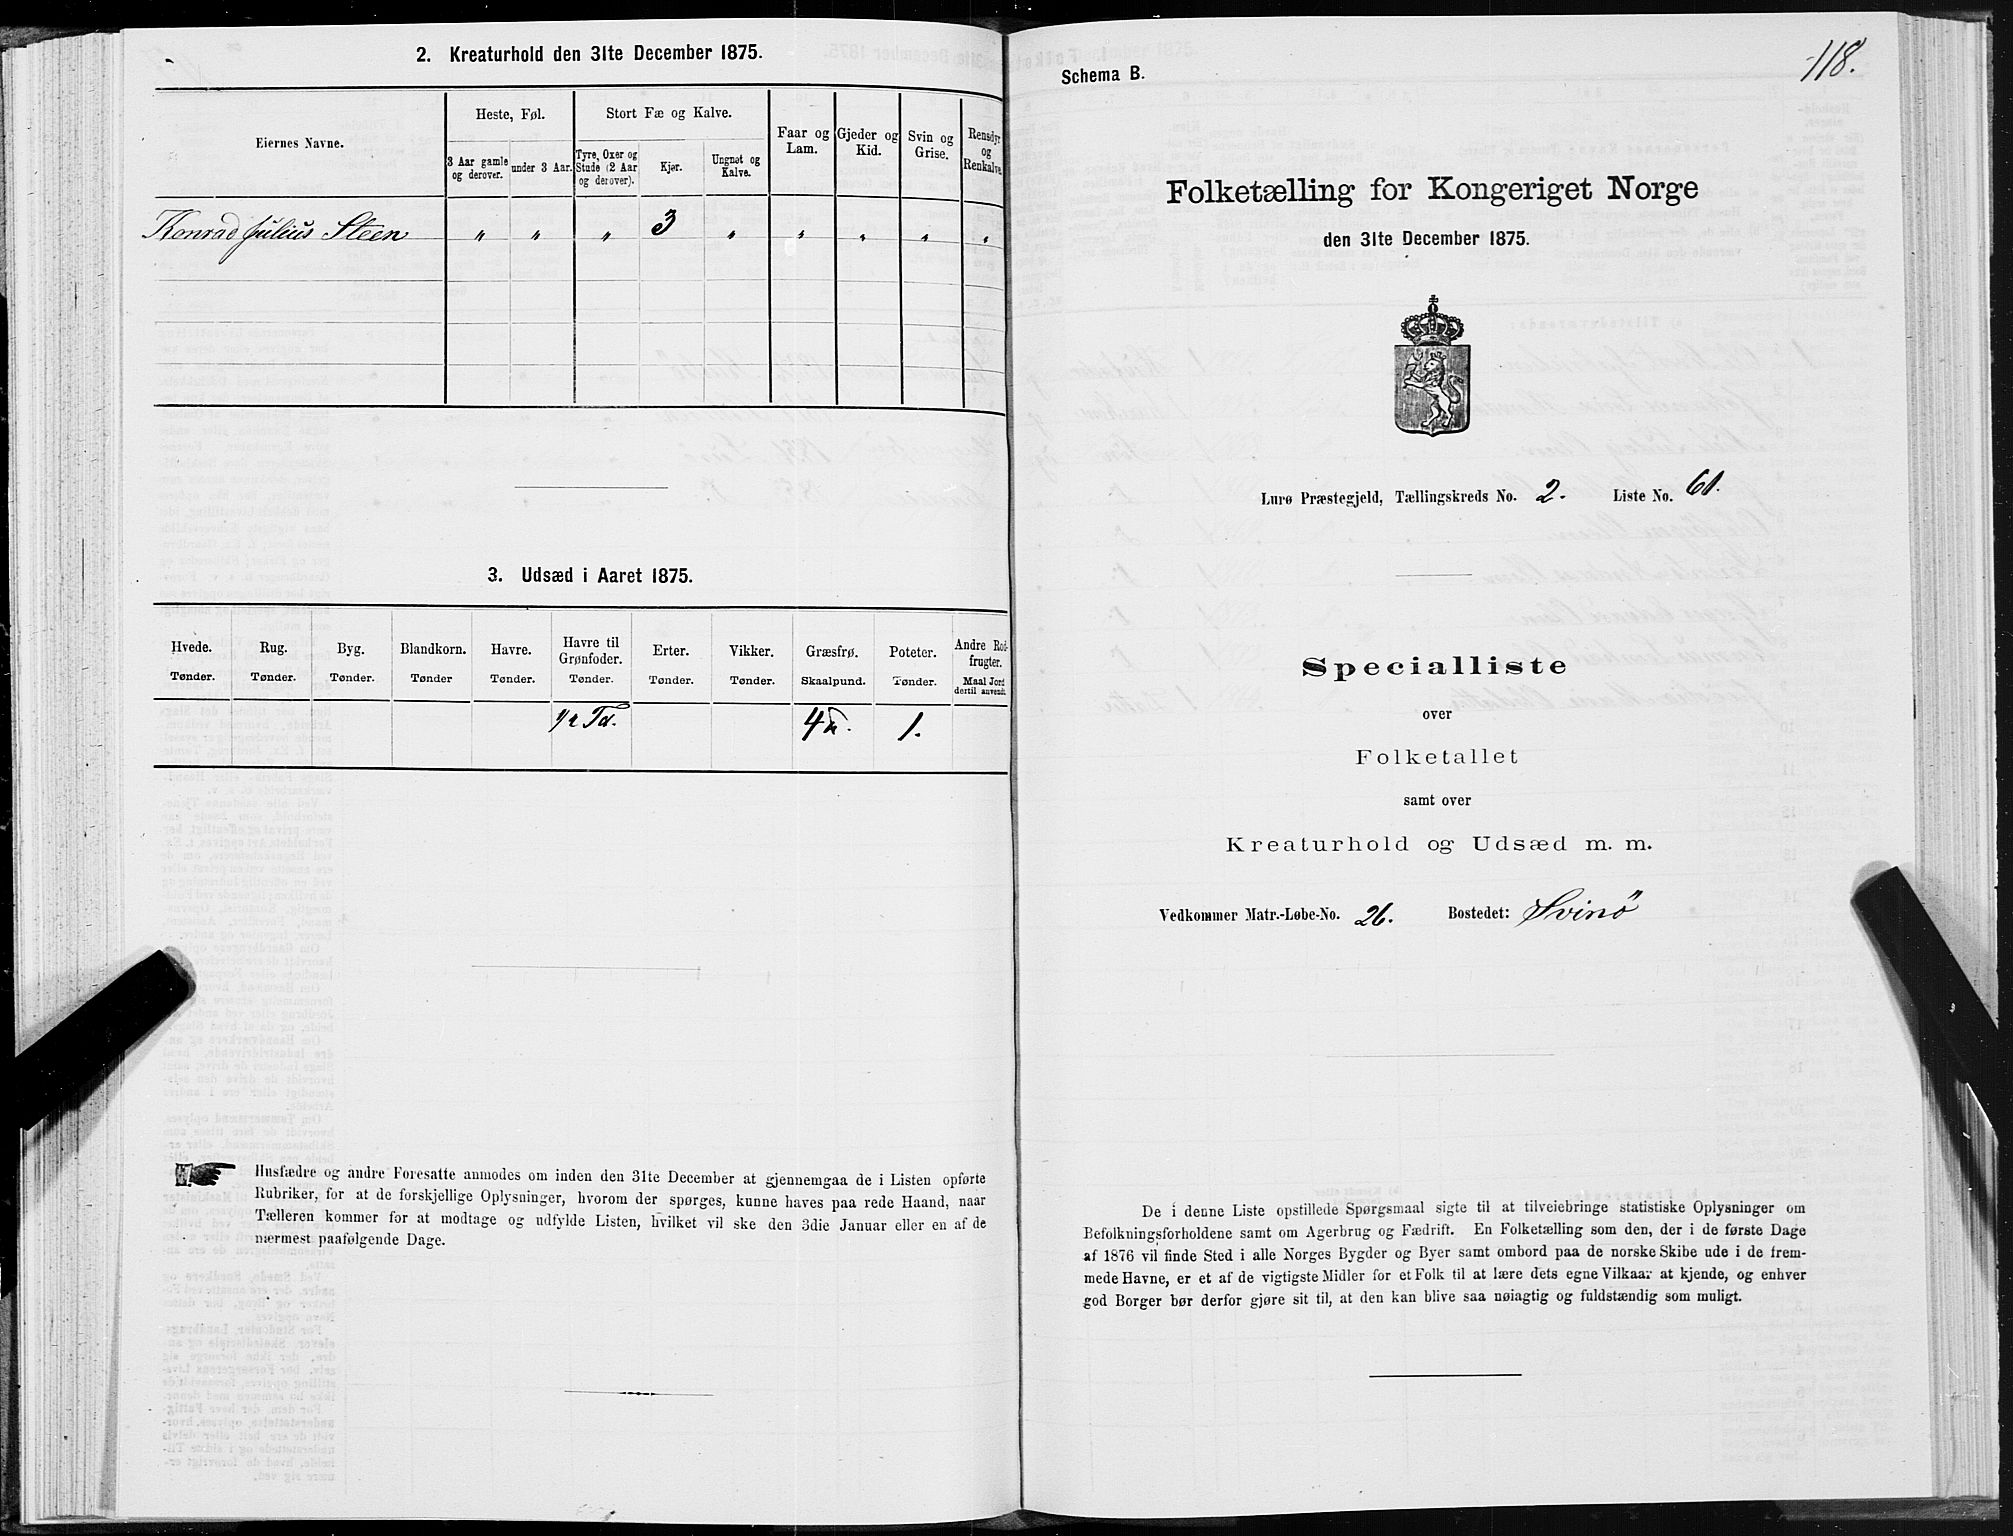 2. Kreaturhold den 31te December 1875.
Eiernes Navne.
Heste, Føl.
Stort Fæ og Kalve.
Faar og Lam.
Gjeder og Kid.
Svin og Grise.
Rensdyr og Renkalve.
3 Aar gamle og derover.
under 3 Aar.
Tyre, Oxer og Stude (2 Aar og derover).
Kjør.
Ungnøt og Kalve.
Konrad Julius Steen " " " 3 " " " " "
3. Udsæd i Aaret 1875.
Hvede. Rug. Byg. Blandkorn. Havre. Havre til Grønfoder. Erter. Vikker. Græsfrø. Poteter. Andre Rodfrugter.
Tønder. Tønder. Tønder. Tønder Tønder. Tønder. Tønder. Tønder. Skaalpund. Tønder. Maal Jord dertil anvendt.
1/2 Td. 4 1.
Husfædre og andre Foresatte anmodes om inden den 31te December at gjennemgaa de i Listen opførte
Rubriker, for at de forskjellige Oplysninger, hvorom der spørges, kunne haves paa rede Haand, naar
Tælleren kommer for at modtage og udfylde Listen, hvilket vil ske den 3die Januar eller en af de
nærmest paafølgende Dage.
118.
Schema B.
Folketælling for Kongeriget Norge
den 31te December 1875.
Lurø Præstegjeld, Tællingskreds No. 2. Liste No. 61.
Specialliste
over
Folketallet
samt over
Kreaturhold og Udsæd m. m.
Vedkommer Matr.-Løbe-No. 26. Bostedet: Svinö
De i denne Liste opstillede Spørgsmaal sigte til at tilveiebringe statistiske Oplysninger om
Befolkningsforholdene samt om Agerbrug og Fædrift. En Folketælling som den, der i de første Dage
af 1876 vil finde Sted i alle Norges Bygder og Byer samt ombord paa de norske Skibe ude i de frem-
mede Havne, er et af de vigtigste Midler for et Folk til at lære dets egne Vilkaar at kjende, og enhver
god Borger bør derfor gjøre sit til, at den kan blive saa nøiagtig og fuldstændig som muligt.